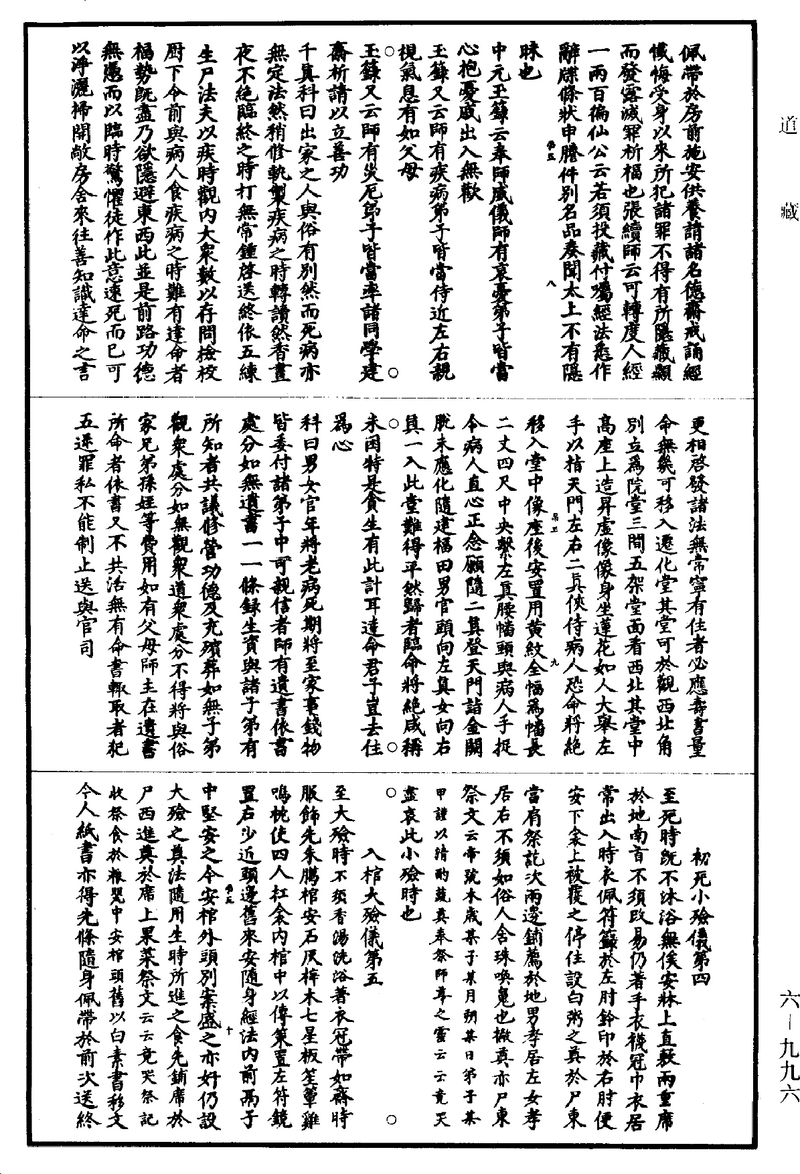 道藏
佩帶於房前施安供養請諸名德齋戒誦經
懺悔受身以來所犯諸罪不得有所隱藏顯
而發露滅罪祈福也張續師云可轉度人經
一兩百徧仙公云若須投藏付囑經法悉作
辭牒條狀申謄件別名品奏聞太上不有隱
昧也
中元玉籙云奉師威儀師有哀憂弟子皆當
心抱憂慼出入無歡
玉籙又云師有疾病弟子皆當侍近左右親
視氣息有如父母
玉籙又云師有災厄弟子皆當率諸同學建
齋祈請以立善功
千真科曰出家之人與俗有別然而死病亦
無定法然稍修軌製疾病之時轉讀然香晝
夜不絕臨終之時打無常鍾啓送終依五練
生尸法夫以疾時觀內大衆數以存問檢校
厨下令前與病人食疾病之時難有達命者
福勢旣盡乃欲隱避東西此並是前路功德
無憑而以臨時驚懼徒作此意速死而已可
以淨灑掃開敞房舍來往善知識達命之言
更相啓發諸法無常寧有住者必應壽書量
命無幾可移入遷化堂其堂可於觀西北角
別立爲院堂三間五架堂面看西北其堂中
高座上造昇虛像像身坐蓮花如人大舉左
手以指天門左右二真俠侍病人恐命將絕
移入堂中像座後安置用黄紋全幅爲幡長
二丈四尺中央繫左真腰幡頭與病人手捉
令病人直心正念願隨二真登天門詣金闕
脫未應化隨建福田男官頭向左真女向右
真一入此堂難得平然歸者臨命將絕咸稱
未困特是貪生有此計耳達命君子豈去住
爲心
科曰男女官年將老病死期將至家事錢物
皆委付諸弟子中可親信者師有遺書依書
處分如無遺書一一條錄生資與諸子弟有
所知者共議修營功德及充殯葬如無子弟
觀衆處分如無觀衆道衆處分不得將與俗
家兄弟孫姪等費用如有父母師主在遺書
所命者依書又不共活無有命書輙取者犯
五逆罪私不能制止送與官司
初死小殮儀第四
至死時旣不沐浴無俟安牀上直敷兩重席
於地南首不須改易仍著手衣襪冠巾衣居
常出入時衣佩符籙於左肘鈐印於右肘便
安下衾上被覆之停住設白粥之奠於尸東
當有祭訖次兩邊鋪薦於地男孝居左女孝
居右不須如俗人含珠喚䰟也撤奠亦尸東
祭文云帝號本歲某子某月朔某日弟子某
甲謹以清酌蔬奠奉祭師尊之靈云云竟天
盡哀此小殮時也
入棺大殮儀第五
至大殮時不須香湯洗浴著衣冠帶如齋時
服飾先朱膓棺安石灰梓木七星板笙簟雞
鳴枕使四人扛衾內棺中以傳策置左符鏡
置右少近頭邊舊來安隨身經法內前萬子
中堅安之今安棺外頭別案盛之亦好仍設
大殮之奠法隨用生時所進之食先鋪席於
尸西進奠於席上果菜祭文云云竟哭祭記
收祭食於粮甖中安棺頭舊以白素書移文
今人紙書亦得先條隨身佩帶於前次送終
六－九九六